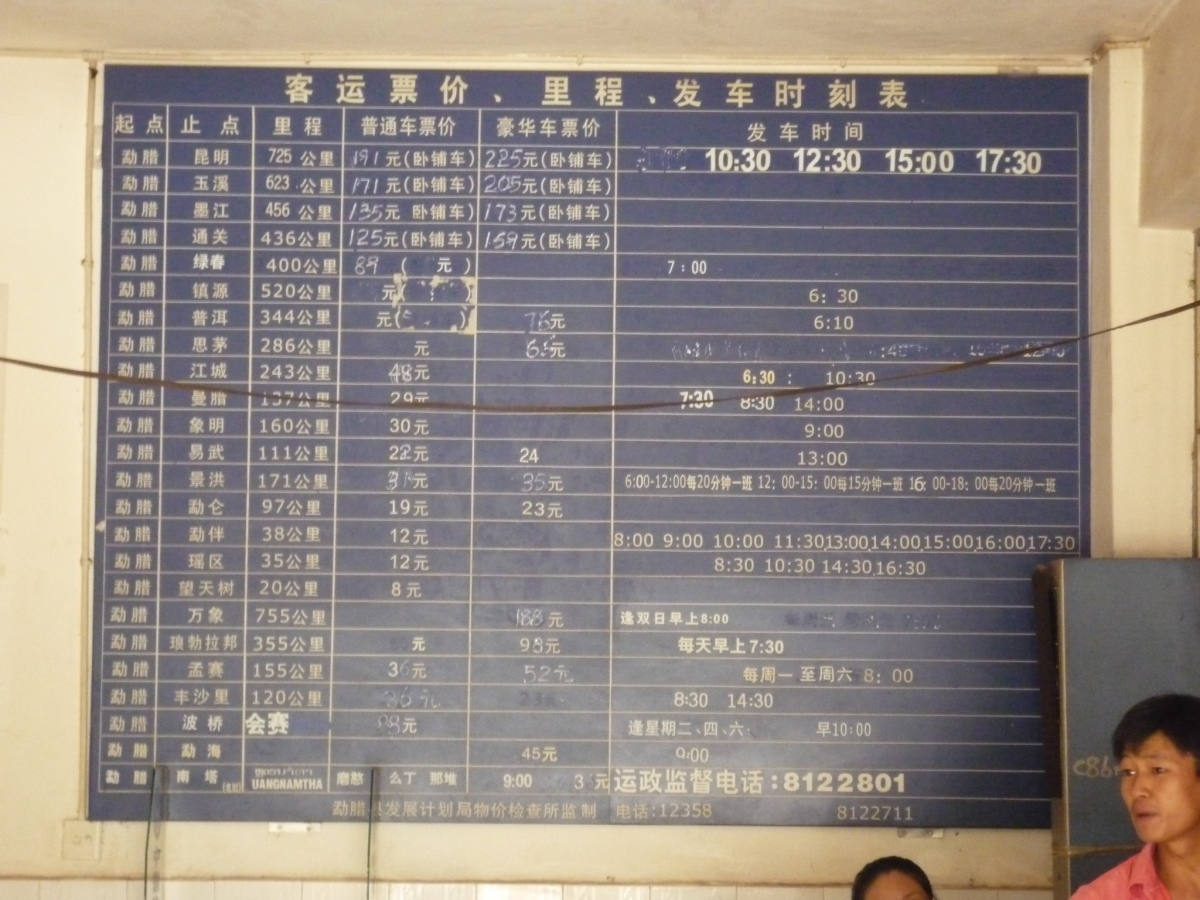 客运票价、里程、发车时刻表
起点 止点 里程 普通车票价 豪华车票价 发车时间
勐腊 昆明 725公里 191元(卧铺车) 225元(卧铺车) 10:30 12:30 15:00 17:30
勐腊 玉溪 623公里 171元(卧铺车) 205元(卧铺车)
勐腊 墨江 456公里 135元 卧铺车) 173元(卧铺车)
勐腊 通关 436公里 125元(卧铺车) 159元(卧铺车)
勐腊 绿春 400公里 89 ( 元) 7:00
勐腊 镇源 520公里 元( ) 6:30
勐腊 普洱 344公里 元( ) 元 6:10
勐腊 思茅 286公里 元 元
勐腊 江城 243公里 48元 6:30 : 10:30
勐腊 曼腊 137公里 29元 7:30 8:30 14:00
勐腊 象明 160公里 30元 9:00
勐腊 易武 111公里 22元 24 13:00
勐腊 景洪 171公里 元 35元 6:00-12:00每20分钟一班 12:00-15:00每15分钟一班 16:00-18:00每20分钟一班
勐腊 勐仑 97公里 19元 23元
勐腊 勐伴 38公里 12元 8:00 9:00 10:00 11:30,13:00,14:00,15:00,16:00,17:30
勐腊 瑶区 35公里 12元 8:30 10:30 14:30,16:30
勐腊 望天树 20公里 8元
勐腊 万象 755公里 188元 逢双日早上8:00
勐腊 琅勃拉邦 355公里 元 98元 每天早上7:30
勐腊 孟赛 155公里 36元 52元 每周一至周六 8:00
勐腊 丰沙里 120公里 元 8:30 14:30
勐腊 波桥 会赛 元 逢星期二、四、六 早10:00
勐腊 勐海 45元 9:00
勐腊 南塔 UANGNAMTHA 磨憨 么丁 那堆 9:00 3 元 运政监督电话:8122801
勐腊 发展计划局物价检查所监制 电话:12358 8122711